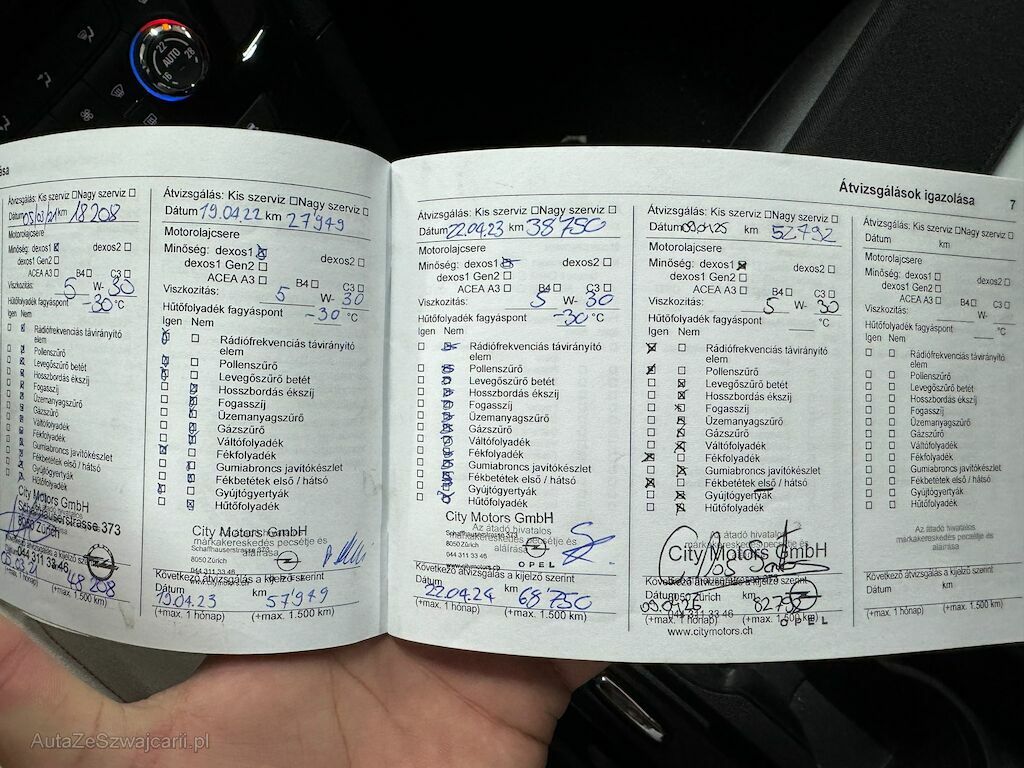 22 AUTO 26
16
ása
Átvizsgálások igazolása 7
Átvizsgálás: Kis szerviz ☐Nagy szerviz ☐
Dátum 05/03/21 km 18208
Motorolajcsere
Minőség: dexos1 ☒ dexos2 ☐
dexos1 Gen2 ☐
ACEA A3 ☐ B4 ☐ C3 ☐
Viszkozitás: 5 W- 30
Hűtőfolyadék fagyáspont -30 °C
Igen Nem
Rádiófrekvenciás távirányító
elem
Pollenszűrő
Levegőszűrő betét
Hosszbordás ékszíj
Fogasszíj
Üzemanyagszűrő
Gázszűrő
Váltófolyadék
Fékfolyadék
Gumiabroncs javítókészlet
Fékbetétek első / hátsó
Gyújtógyertyák
Hűtőfolyadék
City Motors GmbH
Schaffhauserstrasse 373
8050 Zürich
044 311 33 46
48 208
(+max. 1 hónap) (+max. 1.500 km)
Átvizsgálás: Kis szerviz ☐Nagy szerviz ☐
Dátum 19.04.22 km 27949
Motorolajcsere
Minőség: dexos1 ☒ dexos2 ☐
dexos1 Gen2 ☐
ACEA A3 ☐ B4 ☐ C3 ☐
Viszkozitás: 5 W- 30
Hűtőfolyadék fagyáspont -30 °C
Igen Nem
Rádiófrekvenciás távirányító
elem
Pollenszűrő
Levegőszűrő betét
Hosszbordás ékszíj
Fogasszíj
Üzemanyagszűrő
Gázszűrő
Váltófolyadék
Fékfolyadék
Gumiabroncs javítókészlet
Fékbetétek első / hátsó
Gyújtógyertyák
Hűtőfolyadék
City Motors GmbH
Az átadó hivatalos
márkakereskedés pecsétje és
aláírása
Schaffhauserstrasse 373
8050 Zürich
044 311 33 46
Következő átvizsgálás a kijelző szerint
Dátum km
19.04.23 57949
(+max. 1 hónap) (+max. 1.500 km)
Átvizsgálás: Kis szerviz ☐Nagy szerviz ☐
Dátum 22.04.23 km 38750
Motorolajcsere
Minőség: dexos1 ☒ dexos2 ☐
dexos1 Gen2 ☐
ACEA A3 ☐ B4 ☐ C3 ☐
Viszkozitás: 5 W- 30
Hűtőfolyadék fagyáspont -30 °C
Igen Nem
Rádiófrekvenciás távirányító
elem
Pollenszűrő
Levegőszűrő betét
Hosszbordás ékszíj
Fogasszíj
Üzemanyagszűrő
Gázszűrő
Váltófolyadék
Fékfolyadék
Gumiabroncs javítókészlet
Fékbetétek első / hátsó
Gyújtógyertyák
Hűtőfolyadék
City Motors GmbH
Az átadó hivatalos
márkakereskedés pecsétje és
aláírása
Schaffhauserstrasse 373
8050 Zürich
044 311 33 46
www.citymotors.ch
OPEL
Következő átvizsgálás a kijelző szerint
Dátum km
22.04.24 68750
(+max. 1 hónap) (+max. 1.500 km)
Átvizsgálás: Kis szerviz ☐Nagy szerviz ☐
Dátum 09.01.25 km 52792
Motorolajcsere
Minőség: dexos1 ☒ dexos2 ☐
dexos1 Gen2 ☐
ACEA A3 ☐ B4 ☐ C3 ☐
Viszkozitás: 5 W- 30
Hűtőfolyadék fagyáspont °C
Igen Nem
Rádiófrekvenciás távirányító
elem
Pollenszűrő
Levegőszűrő betét
Hosszbordás ékszíj
Fogasszíj
Üzemanyagszűrő
Gázszűrő
Váltófolyadék
Fékfolyadék
Gumiabroncs javítókészlet
Fékbetétek első / hátsó
Gyújtógyertyák
Hűtőfolyadék
City Motors GmbH
Következő átvizsgálás a kijelző szerint
Dátum km
09.01.26 82792
044 311 33 46
OPEL
(+max. 1 hónap) (+max. 1.500 km)
www.citymotors.ch
Átvizsgálás: Kis szerviz ☐Nagy szerviz ☐
Dátum km
Motorolajcsere
Minőség: dexos1 ☐ dexos2 ☐
dexos1 Gen2 ☐
ACEA A3 ☐ B4 ☐ C3 ☐
Viszkozitás: W-
Hűtőfolyadék fagyáspont °C
Igen Nem
Rádiófrekvenciás távirányító
elem
Pollenszűrő
Levegőszűrő betét
Hosszbordás ékszíj
Fogasszíj
Üzemanyagszűrő
Gázszűrő
Váltófolyadék
Fékfolyadék
Gumiabroncs javítókészlet
Fékbetétek első / hátsó
Gyújtógyertyák
Hűtőfolyadék
Az átadó hivatalos
márkakereskedés pecsétje és
aláírása
Következő átvizsgálás a kijelző szerint
Dátum km
(+max. 1 hónap) (+max. 1.500 km)
AutaZeSzwajcarii.pl